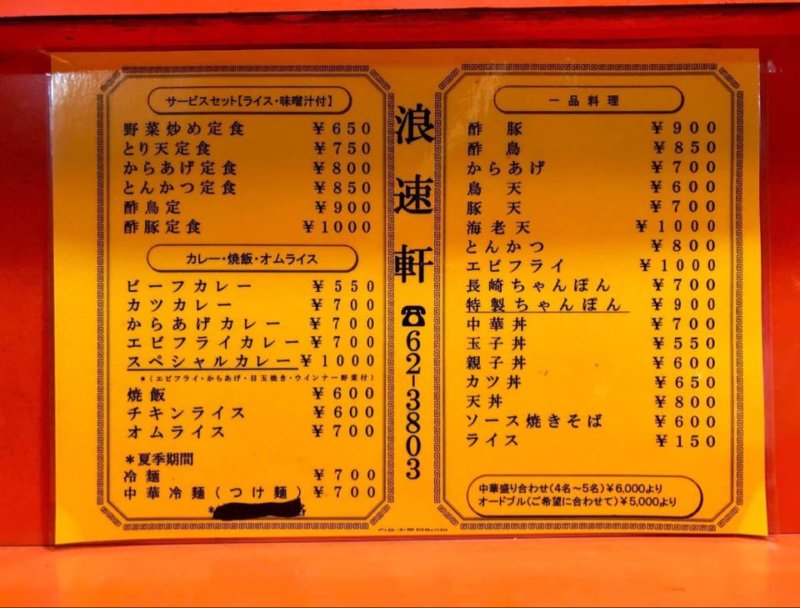 サービスセット【ライス・味噌汁付】
野菜炒め定食 ￥650
とり天定食 ￥750
からあげ定食 ￥800
とんかつ定食 ￥850
酢鳥定 ￥900
酢豚定食 ￥1000
カレー・焼飯・オムライス
ビーフカレー ￥550
カツカレー ￥700
からあげカレー ￥700
エビフライカレー ￥700
スペシャルカレー ￥1000
＊(エビフライ・からあげ・目玉焼き・ウインナー野菜付)
焼飯 ￥600
チキンライス ￥600
オムライス ￥700
＊夏季期間
冷麺 ￥700
中華冷麺(つけ麺) ￥700
浪速軒☎62-3803
一品料理
酢豚 ￥900
酢鳥 ￥850
からあげ ￥700
鳥天 ￥600
豚天 ￥700
海老天 ￥1000
とんかつ ￥800
エビフライ ￥1000
長崎ちゃんぽん ￥700
特製ちゃんぽん ￥900
中華丼 ￥700
玉子丼 ￥550
親子丼 ￥600
カツ丼 ￥650
天丼 ￥800
ソース焼きそば ￥600
ライス ￥150
中華盛り合わせ(4名～5名)￥6,000より
オードブル(ご希望に合わせて)￥5,000より